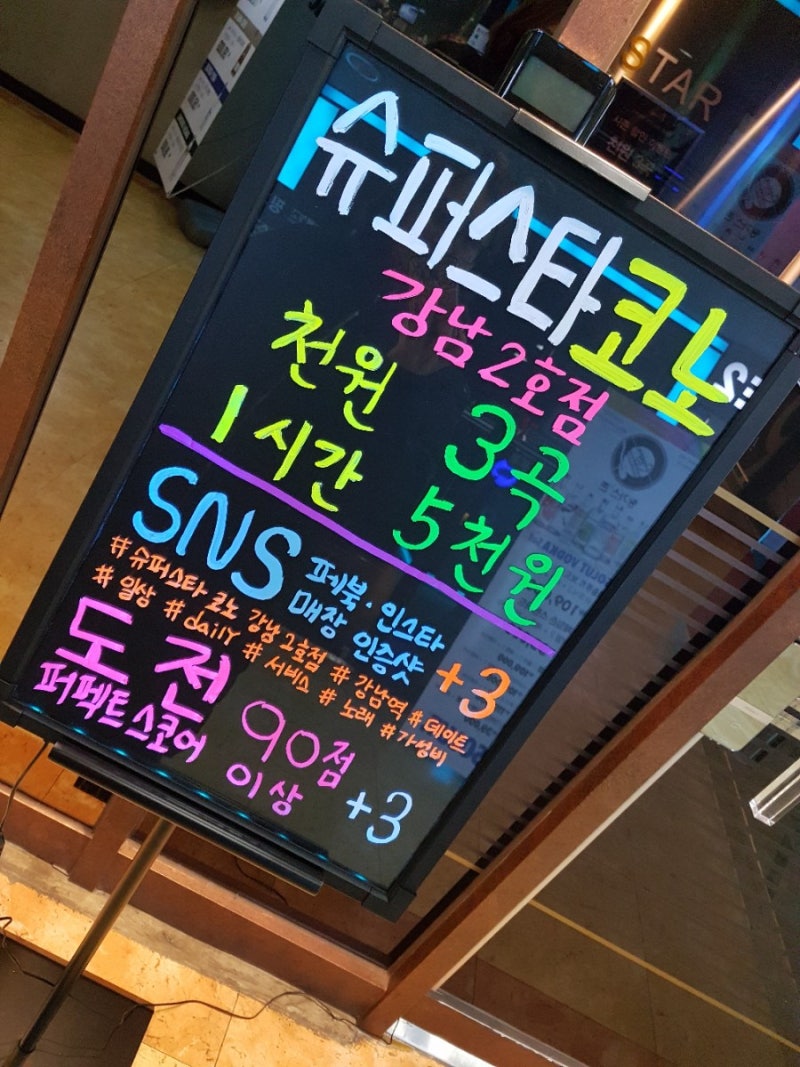 STAR
슈퍼스타코노
강남2호점
천원 3곡
1시간 5천원
SNS 페북·인스타
매장 인증샷 +3
#슈퍼스타 코노 강남 2호점 #강남역 #데이트
#일상 #daily #서비스 #노래 #가성비
도전 90점
퍼펙트스코어 이상 +3